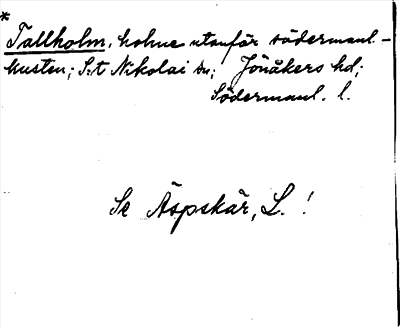 *
Tallholm, holme utanför södermanl.-
kusten; S:t Nikolai sn; Jönåkers hd;
Södermanl. l.
Se Äspskär, L. !